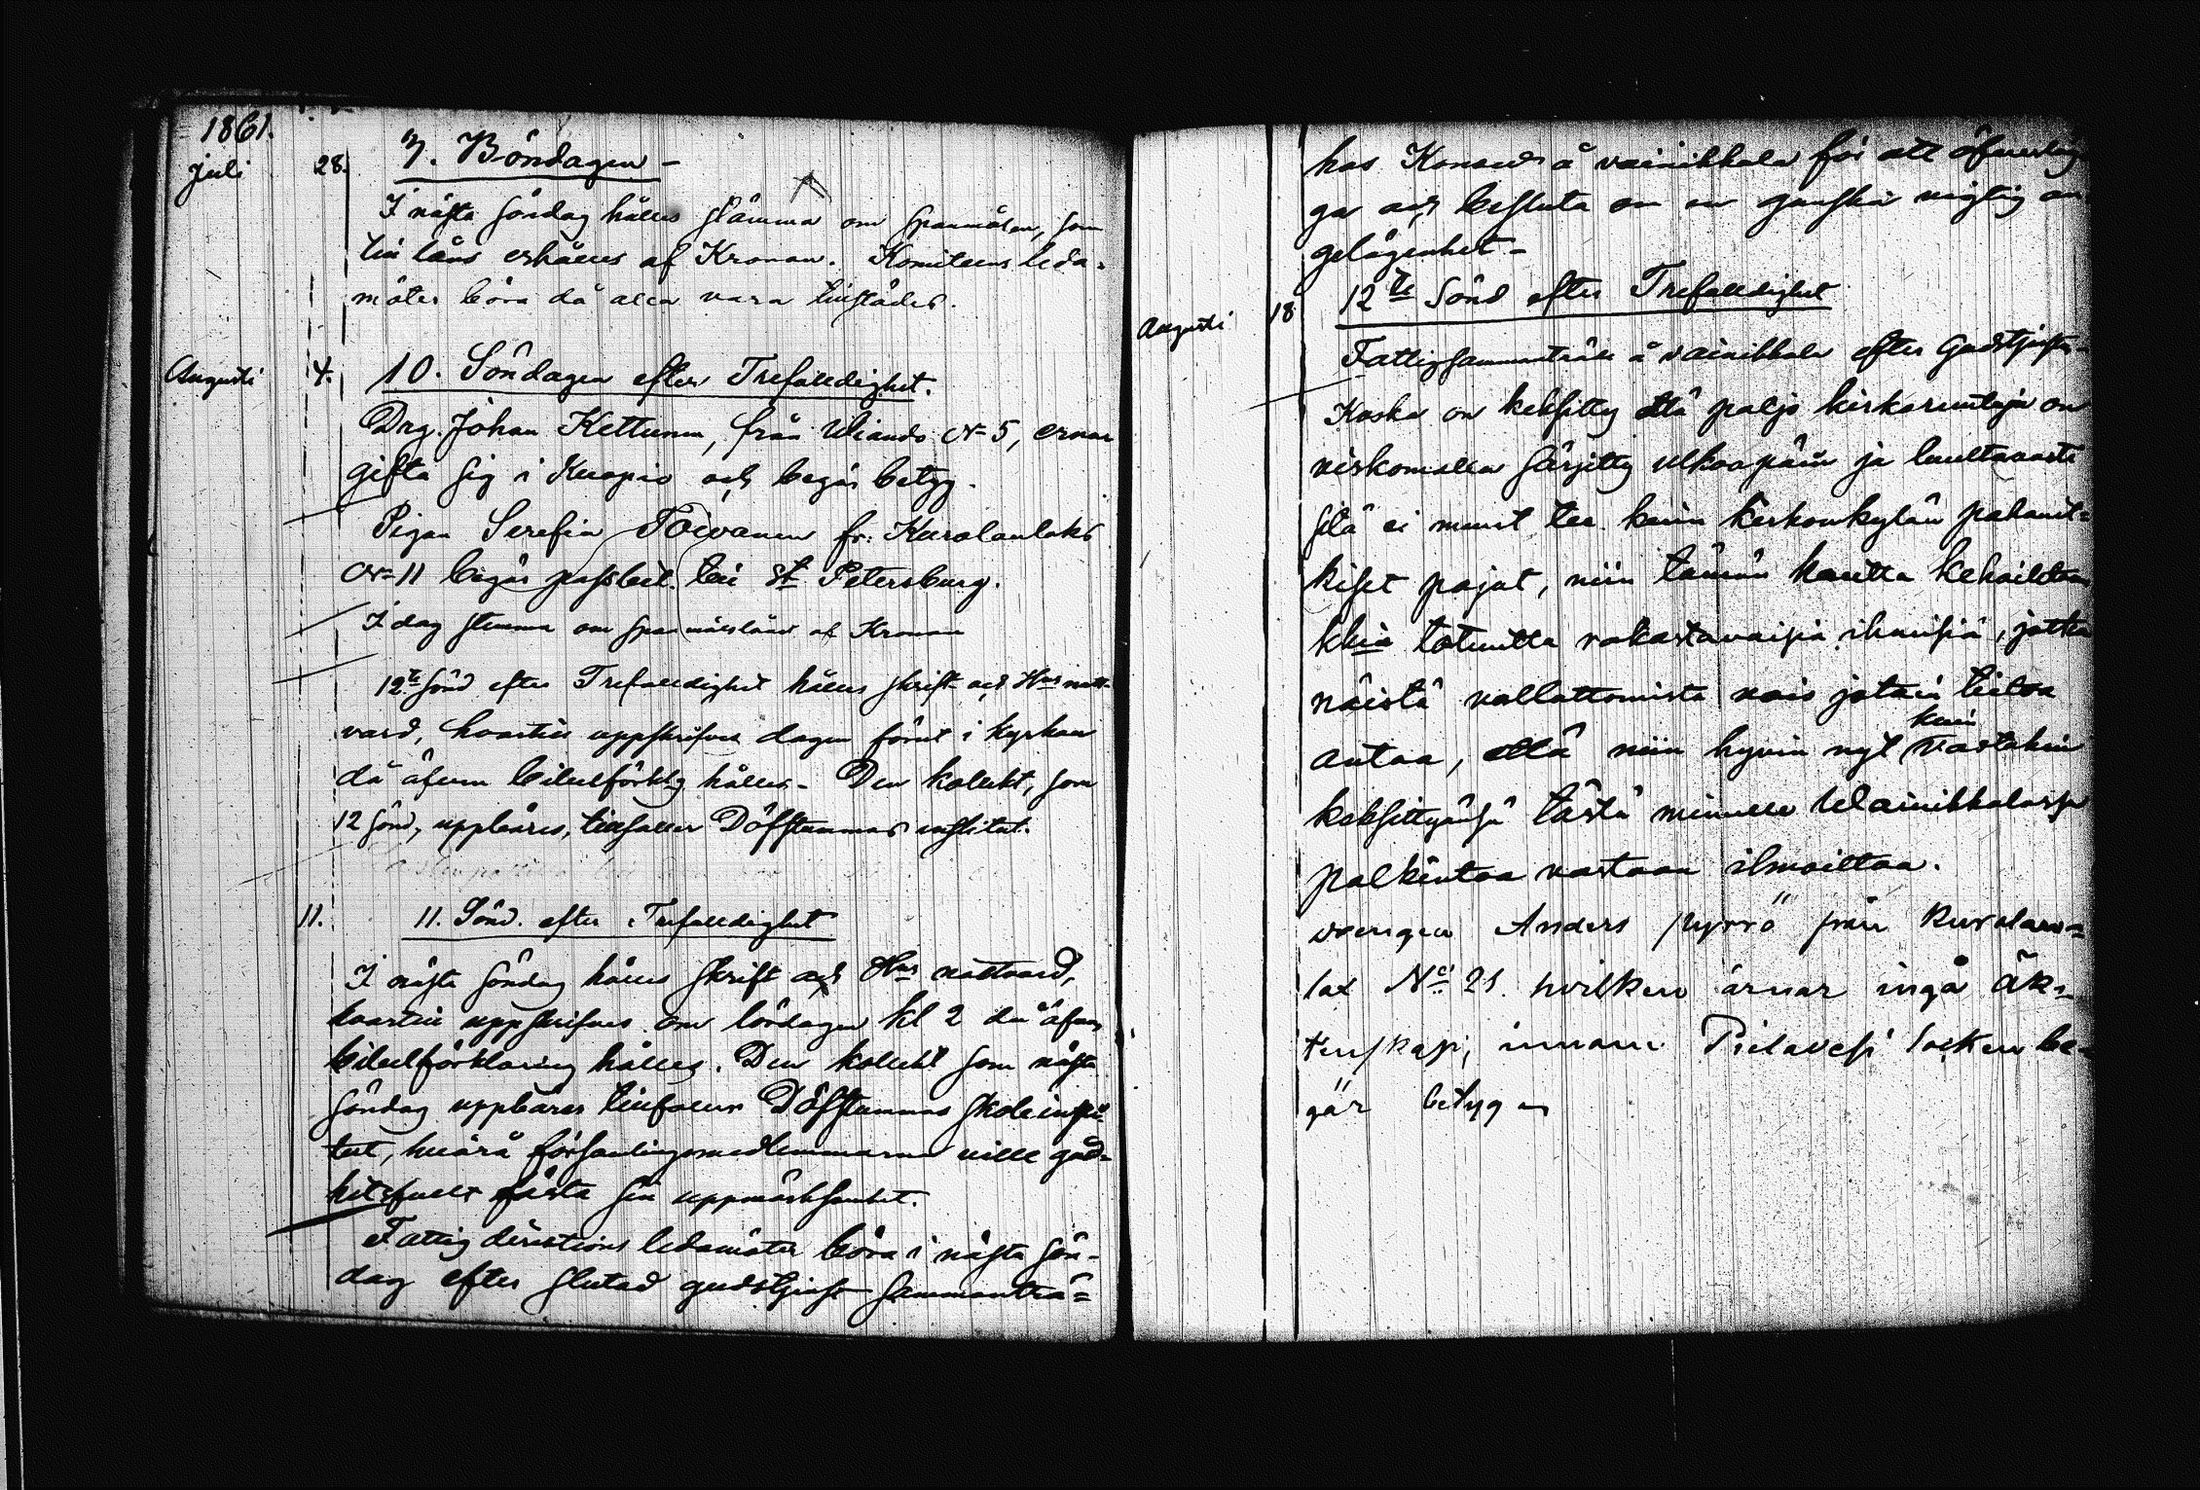 1861.
Juli 28. 3. Böndagen -
I nästa söndag hålles stämma om spanmålen, som
till låns erhålles af Kronan. Komiteens leda-
möter böra då alla vara tillstädes.
Augusti 4. 10. Söndagen efter Trefalldighet.
Drg. Johan Kettunen, från Uliando No 5, ernar
gifta sig i Kuopio och begär betyg.
Pigan Serefia Toivanen fr: Kurolanlaks
No 11 begär passbet. till St Petersburg.
I dag stemma om spanmålslån af Kronan
12te Sönd efter Trefalldighet hålles skrift och Hrs natt-
vard, hvartill uppskrifves dagen förut i kyrkan
då äfven bibelförklg hålles - Den kolekt, som
12 Sönd, uppbäres, tillfaller Döfstummas institut.
11. 11. Sönd. efter Trefalldighet
I nästa söndag hålles skrift och Hrs nattvard,
hvartill uppskrifves om lördagen kl 2 då äfven
bibelförklaring hålles. Den kollekt som nästa
söndag uppbäres tillfaller Döfstummas skoleinsti-
tut, hvarå församlingsmedlemmarna ville god-
hetsfullt fästa sin uppmärksamhet.
Fattig direktions ledamöter böra i nästa sön-
dag efter slutad gudstjenst sammanträ-
has å vainikkala för att öfverläg
ga och besluta om en ganska vigtig an
gelägenhet -
Augusti 18 12te Sönd efter Trefalldighet
Fattigsammanträde å vainikkala efter Gudstjensten-
Koska on keksitty että paljo kirkaruutuja on
viskomalla särjitty ulkoapäin ja luultavasti
sitä ei muut tee kuin kirkonkylän pahant-
kiset pojat, niin tämän kautta kehoitetaan
kkia totuutta rakastavaisia ihmisiä, jotka
näistä vallattomista vois jotain tietoa
antaa, että niin hyvin nyt kuin vastakin
keksittyänsä tästä minulle Wainikkalassa
palkintoa vastaan ilmoittaa.
Drengen Anders Pyrrö från Kurolan-
lax No 21. hvilken ärnar ingå äk-
tenskap, innom Pielavesi socken be-
gär betyg